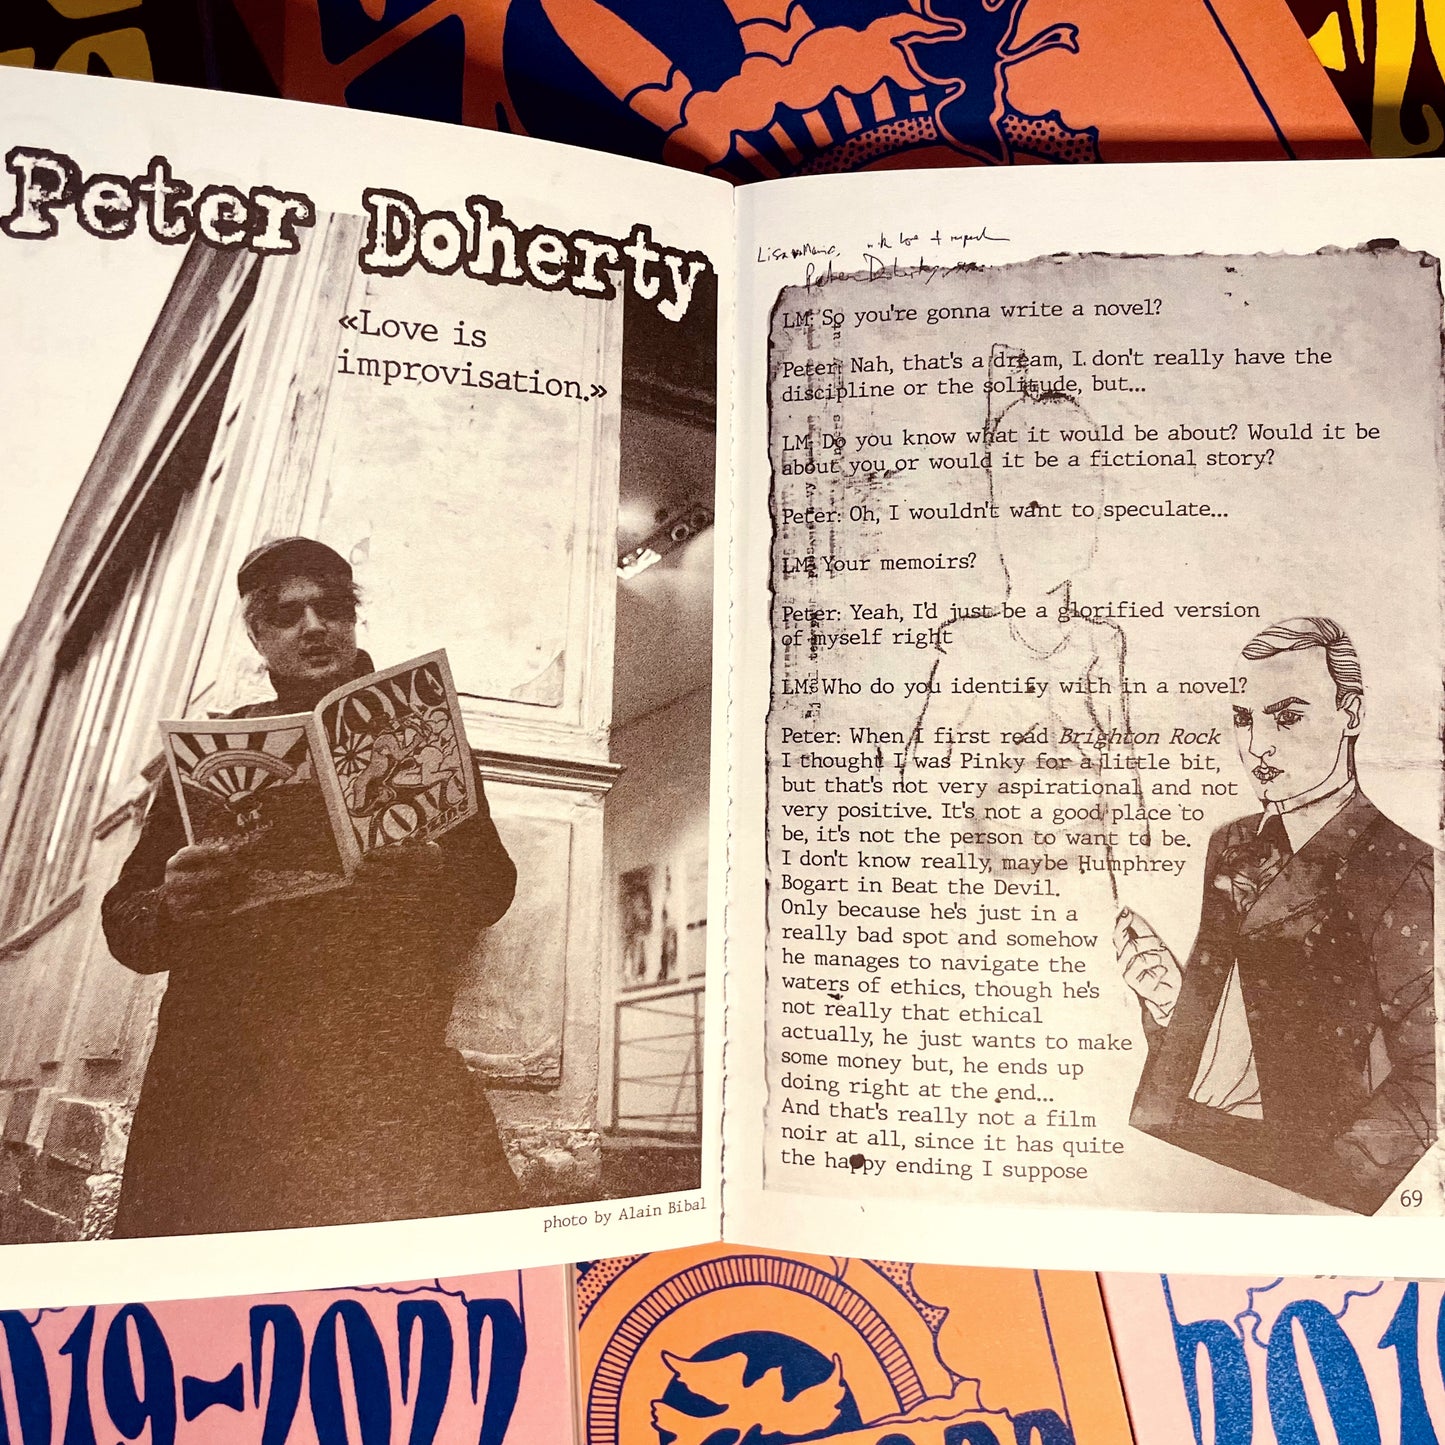 Peter Doherty
«Love is
improvisation.»
photo by Alain Bibal
Peter Doherty
LM: So you're gonna write a novel?
Peter: Nah, that's a dream, I don't really have the
discipline or the solitude, but...
LM: Do you know what it would be about? Would it be
about you or would it be a fictional story?
Peter: Oh, I wouldn't want to speculate...
LM: Your memoirs?
Peter: Yeah, I'd just be a glorified version
of myself right
LM: Who do you identify with in a novel?
Peter: When I first read Brighton Rock
I thought I was Pinky for a little bit,
but that's not very aspirational and not
very positive. It's not a good place to
be, it's not the person to want to be.
I don't know really, maybe Humphrey
Bogart in Beat the Devil.
Only because he's just in a
really bad spot and somehow
he manages to navigate the
waters of ethics, though he's
not really that ethical
actually, he just wants to make
some money but, he ends up
doing right at the end...
And that's really not a film
noir at all, since it has quite
the happy ending I suppose
69
2019-2022